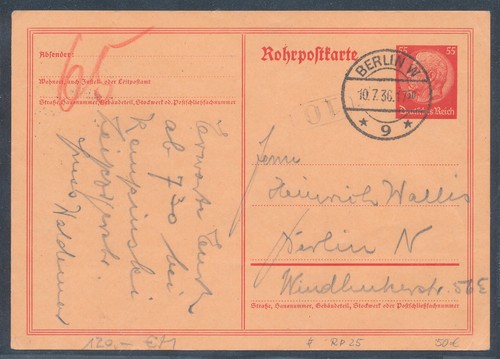 65
Absender:
Wohnort, auch Zustell- oder Leitpostamt
Straße, Hausnummer, Gebäudeteil, Stockwerk od. Postschließfachnummer
Erwarte Euch
ab 7 30 bei
Kempinski
Leipzigerstr.
Rohrpostkarte
55 55
Deutsches Reich
BERLIN W
10.7.36.
* 9 *
Herrn
Heinrich Wallis
Berlin N
56E
Straße, Hausnummer, Gebäudeteil, Stockwerk oder Postschließfachnummer
120,-
# RP 25
50€